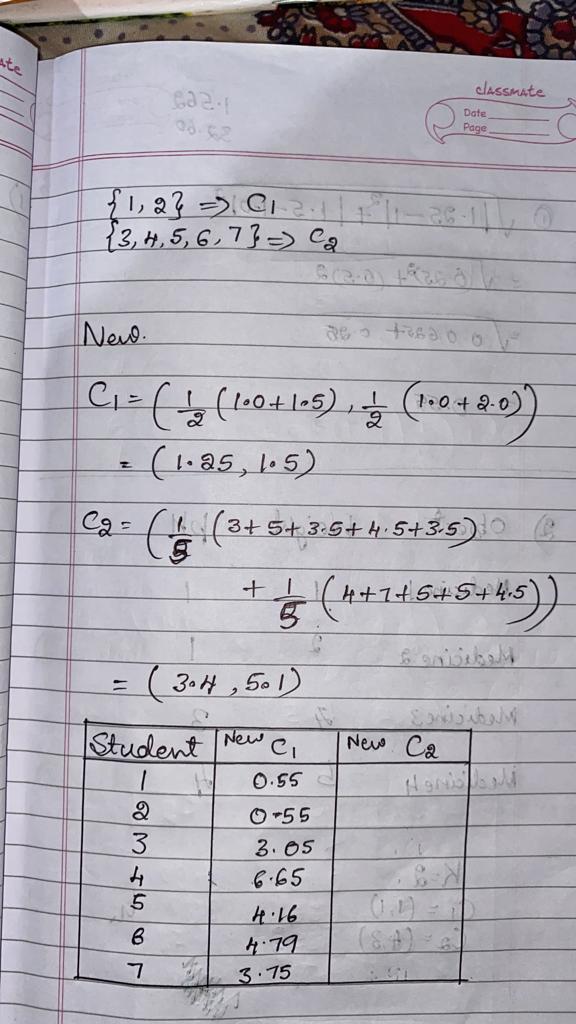 classmate
Date
Page
{1, 2} => C1
{3, 4, 5, 6, 7} => C2
New.
C1 = ( 1/2 (1.0 + 1.5) , 1/2 (1.0 + 2.0))
= (1.25, 1.5)
C2 = ( 1/5 (3 + 5 + 3.5 + 4.5 + 3.5)
+ 1/5 (4 + 7 + 5 + 5 + 4.5))
= (3.4, 5.1)
Student New C1 New C2
1 0.55
2 0.55
3 3.05
4 6.65
5 4.16
6 4.79
7 3.75